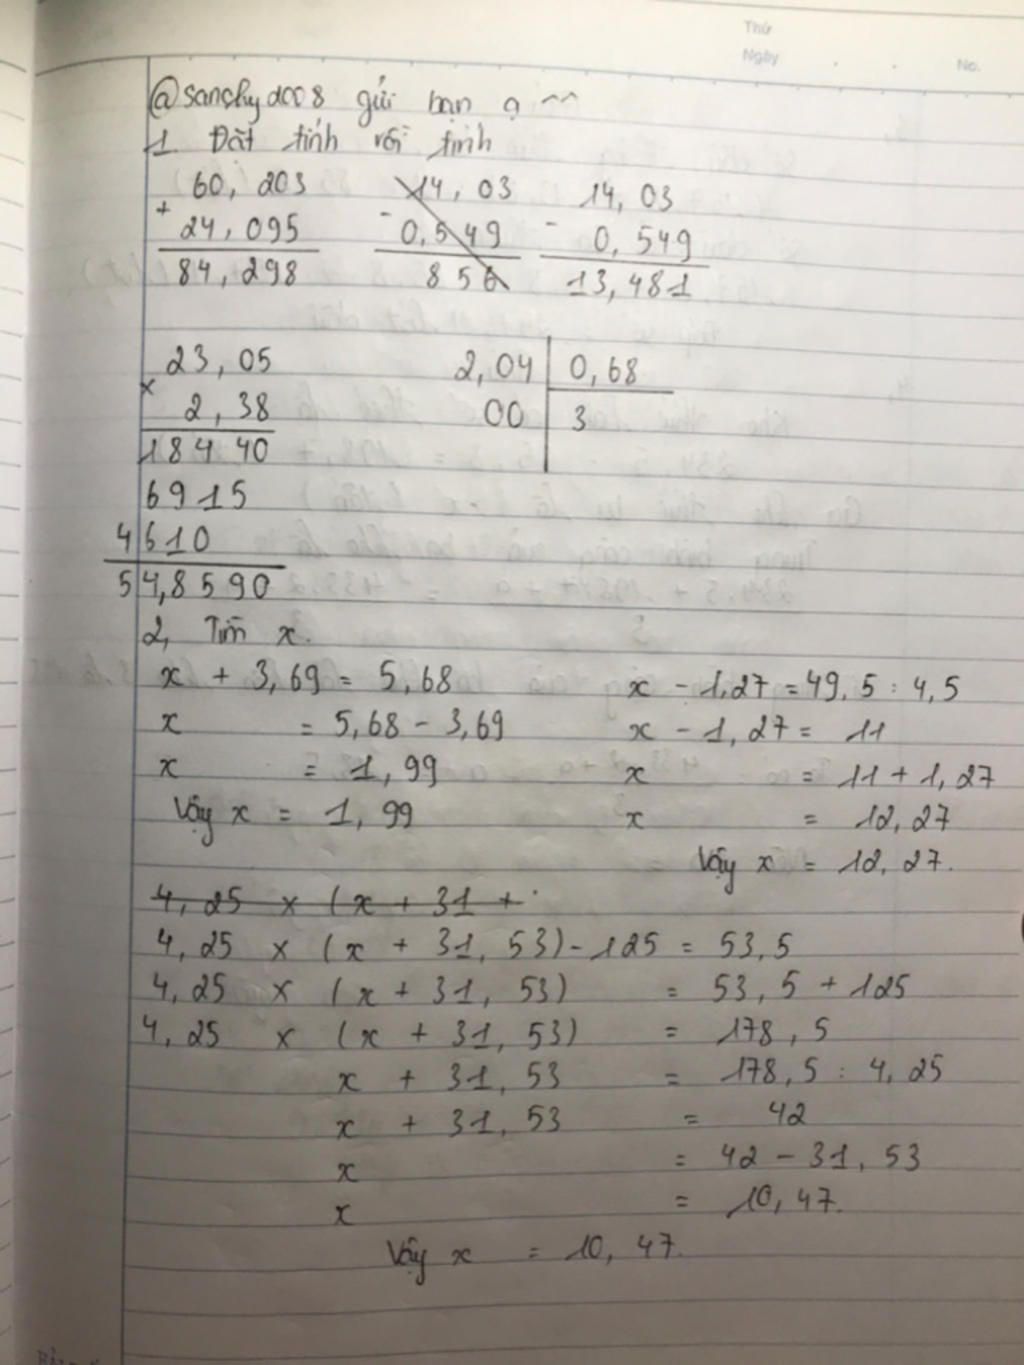 Thứ
Ngày
No.
@sanchyd008 gửi bạn ạ ^^
1. Đặt tính rồi tính
60,203 14,03 14,03
+ - -
24,095 0,549 0,549
84,298 856 13,481
23,05 2,04 0,68
x
2,38 00 3
18440
6915
4610
54,8590
2, Tìm x.
x + 3,69 = 5,68 x - 1,27 = 49,5 : 4,5
x = 5,68 - 3,69 x - 1,27 = 11
x = 1,99 x = 11 + 1,27
Vậy x = 1,99 x = 12,27
Vậy x = 12,27.
4,25 x (x + 31 +
4,25 x (x + 31,53) - 125 = 53,5
4,25 x (x + 31,53) = 53,5 + 125
4,25 x (x + 31,53) = 178,5
x + 31,53 = 178,5 : 4,25
x + 31,53 = 42
x = 42 - 31,53
x = 10,47.
Vậy x = 10,47.